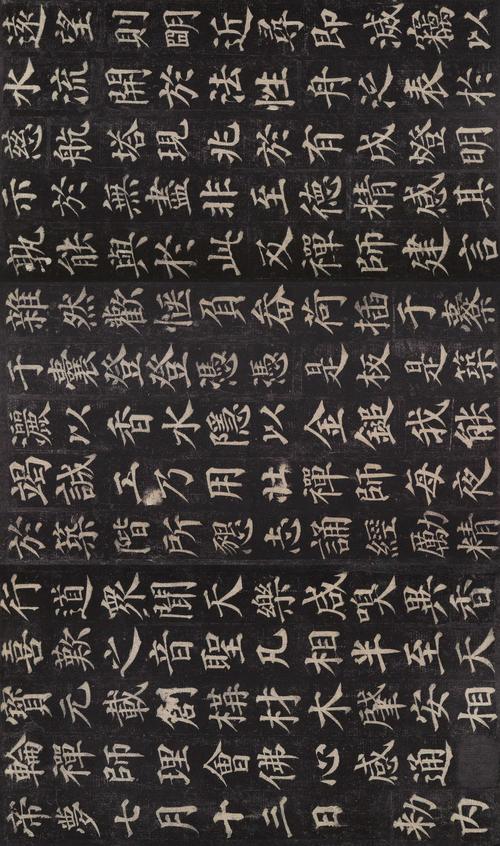 遠望則明近尋即滅竊以
水流開於法性舟泛表於
慈航塔現兆於有成燈明
示於無盡非至德精感其
孰能與於此及禪師建言
雜然歡愜負畚荷插于橐
于囊登登憑憑是板是築
灑以香水隱以金鎚我能
竭誠工乃用壯禪師每夜
於築階所懇志誦經勵精
行道衆聞天樂咸嗅異香
喜歎之音聖凡相半至天
寶元載創構材木肇安相
輪禪師理會佛心感通
帝夢七月十三日 勑內